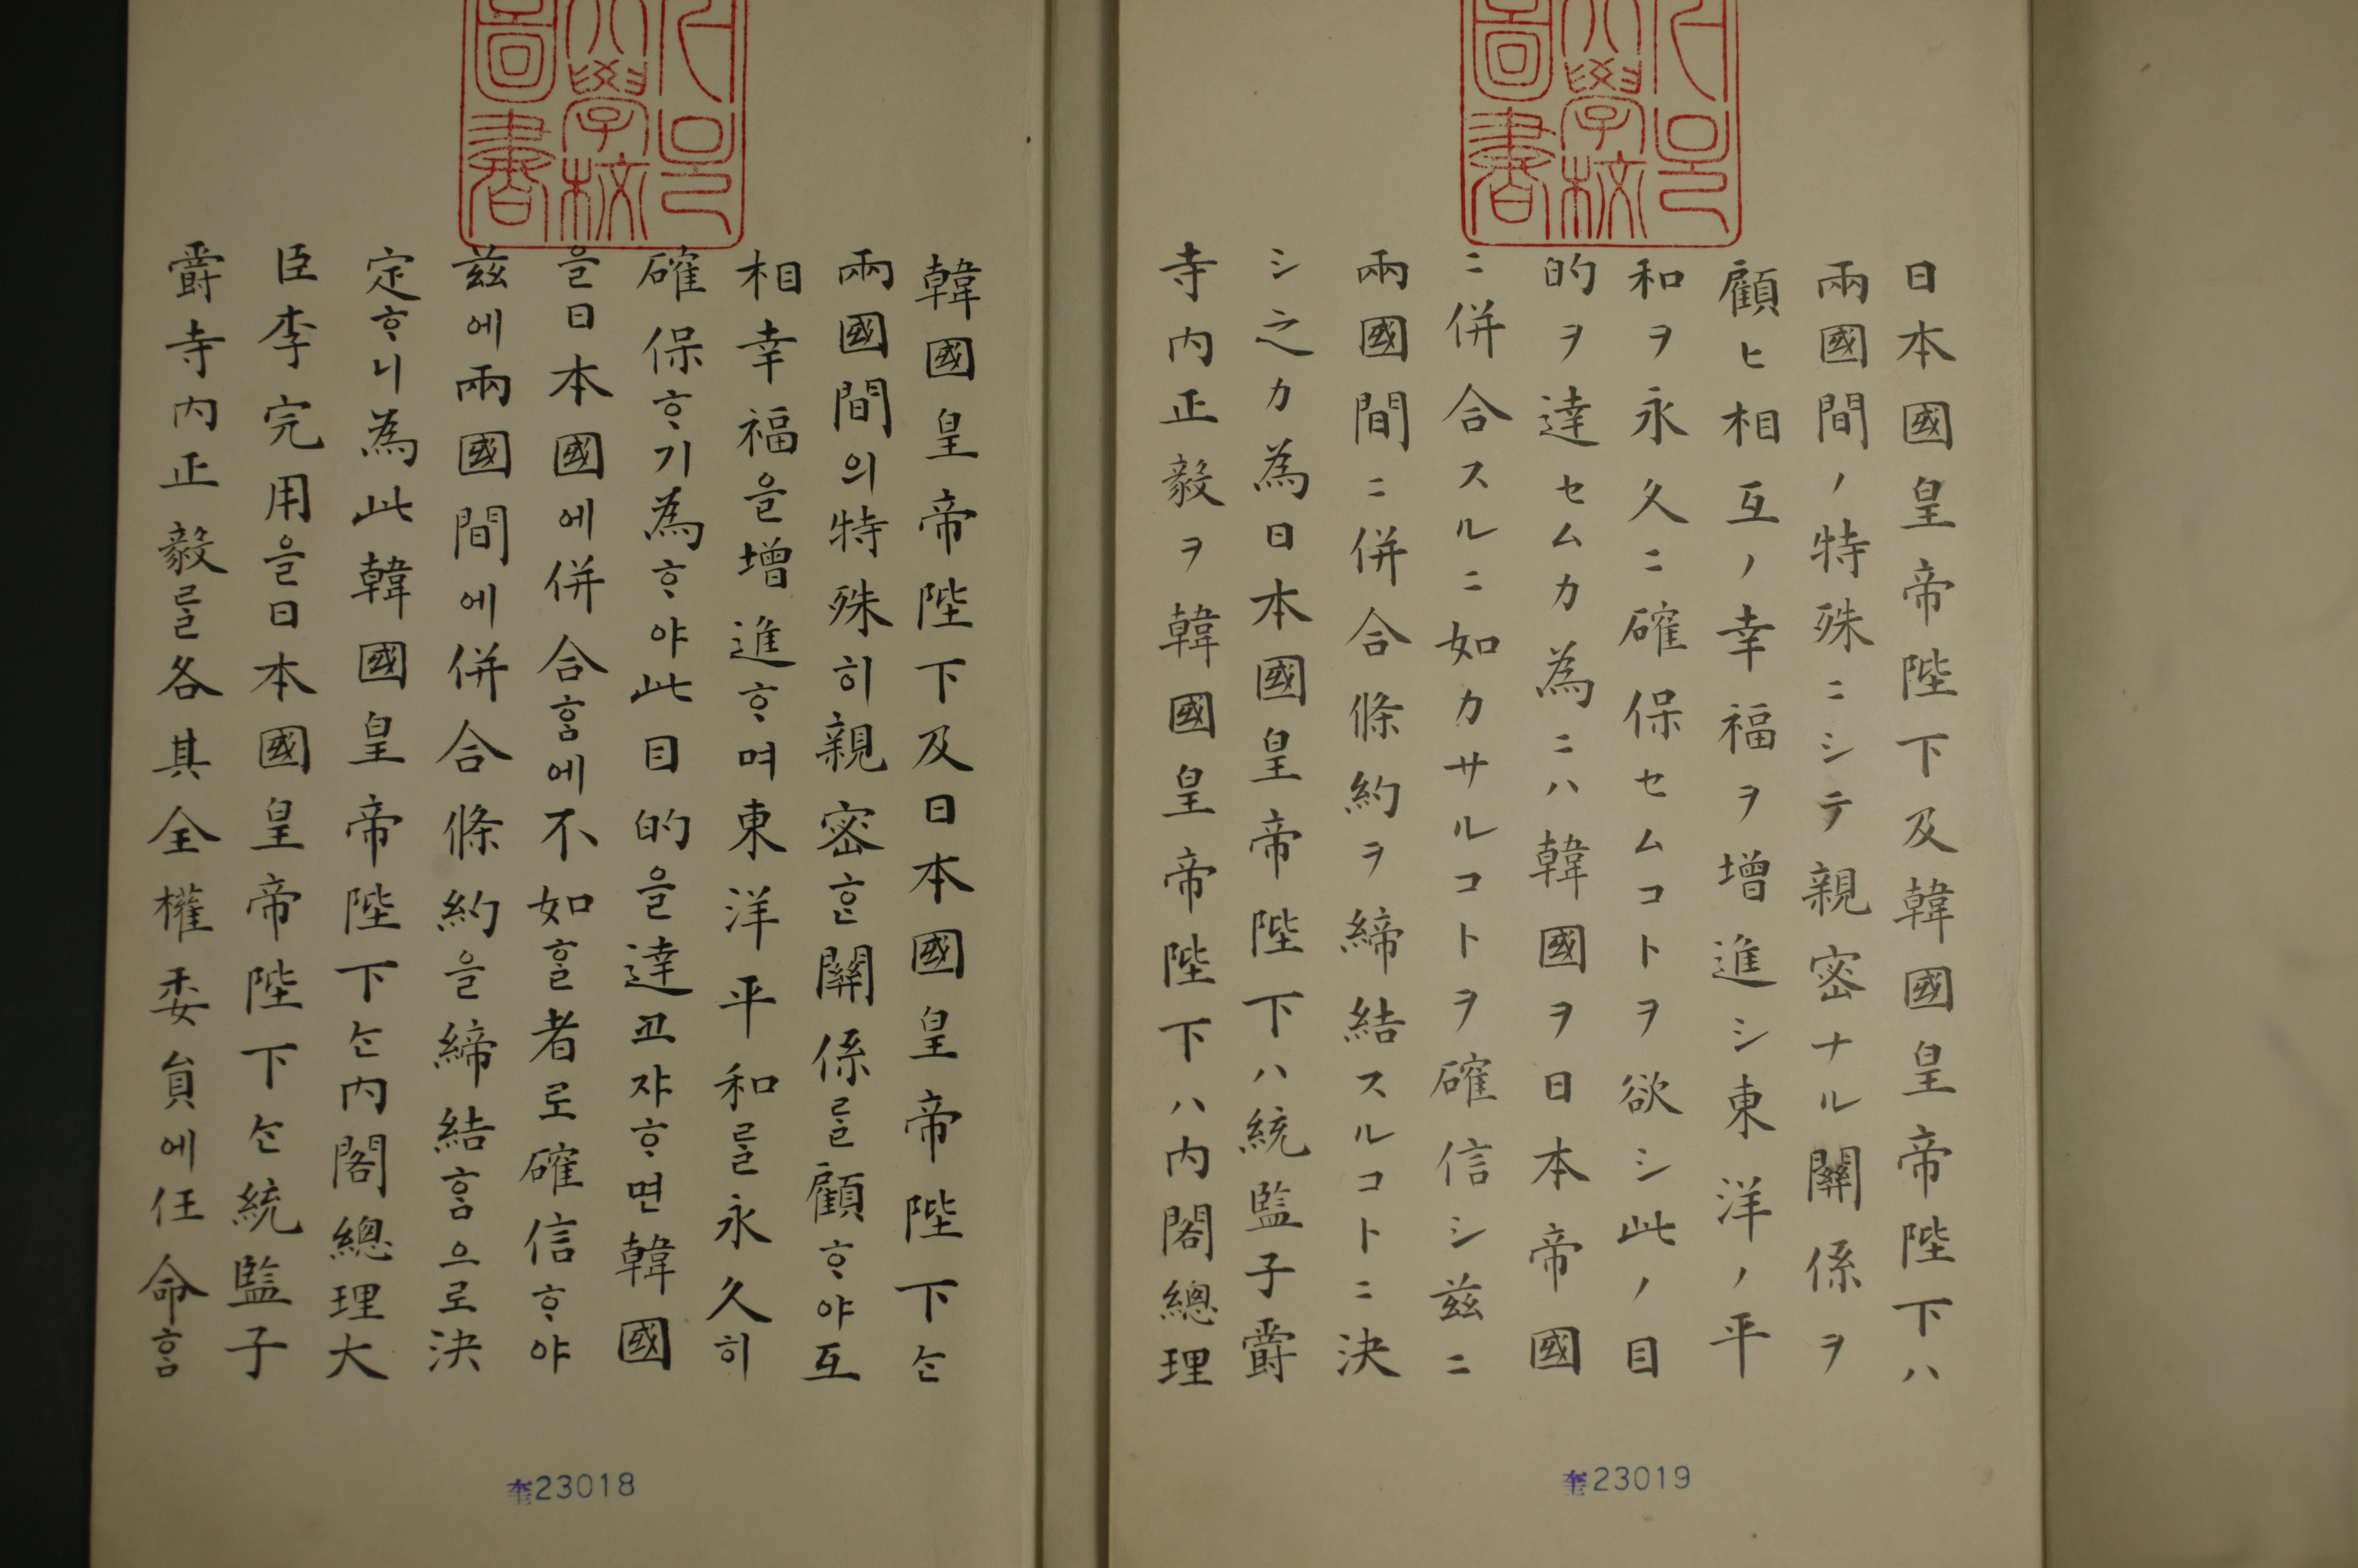 日本國皇帝陛下及韓國皇帝陛下ハ
兩國間ノ特殊ニシテ親密ナル關係ヲ
顧ヒ相互ノ幸福ヲ增進シ東洋ノ平
和ヲ永久ニ確保セムコトヲ欲シ此ノ目
的ヲ達セムカ為ニハ韓國ヲ日本帝國
ニ併合スルニ如カサルコトヲ確信シ玆ニ
兩國間ニ併合條約ヲ締結スルコトニ決
シ之カ為日本國皇帝陛下ハ統監子爵
寺内正毅ヲ韓國皇帝陛下ハ内閣總理
奎23019
韓國皇帝陛下及日本國皇帝陛下는
兩國間의特殊히親密ᄒᆞᆫ關係를顧ᄒᆞ야互
相幸福을增進ᄒᆞ며東洋平和를永久히
確保ᄒᆞ기為ᄒᆞ야此目的을達코쟈ᄒᆞ면韓國
을日本國에併合ᄒᆞᆷ에不如ᄒᆞᆯ者로確信ᄒᆞ야
玆에兩國間에併合條約을締結ᄒᆞᆷ으로決
定ᄒᆞ니為此韓國皇帝陛下는内閣總理大
臣李完用을日本國皇帝陛下는統監子
爵寺内正毅를各其全權委員에任命ᄒᆞᆷ
奎23018